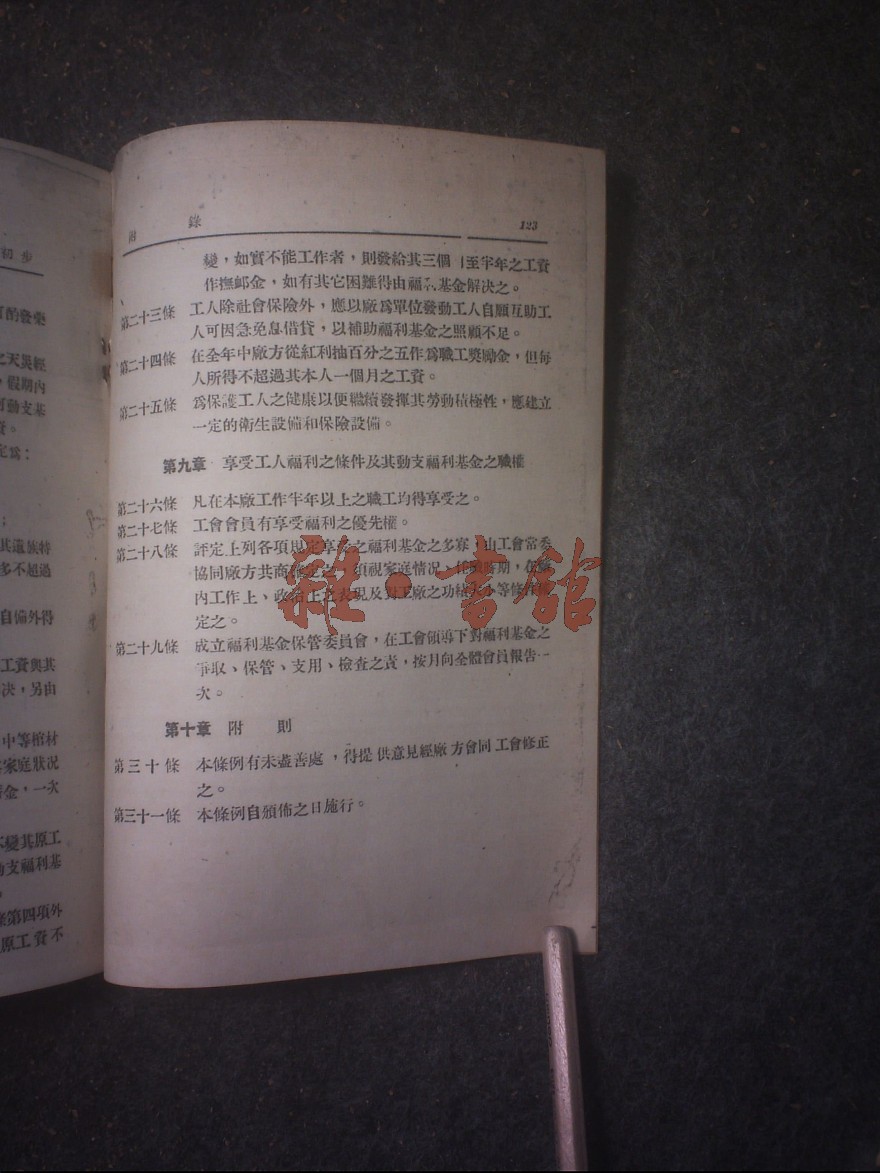 初步
酌發藥
之天與經
，假期內
可動支基
資。
定為：
；
其遺族特
多不超過
自備外得
工資與其
決，另由
中等棺材
家庭狀況
金，一次
不變其原工
動支福利基
。
條第四項外
原工資不
附　錄　123
變，如實不能工作者，則發給其三個月至半年之工資
作撫卹金，如有其它困難得由福利基金解決之。
第二十三條　工人除社會保險外，應以廠爲單位發動工人自願互助工
人可因急免息借貸，以補助福利基金之照顧不足。
第二十四條　在全年中廠方從紅利抽百分之五作爲職工獎勵金，但每
人所得不超過其本人一個月之工資。
第二十五條　爲保護工人之健康以便繼續發揮其勞動積極性，應建立
一定的衛生設備和保險設備。
第九章　享受工人福利之條件及其動支福利基金之職權
第二十六條　凡在本廠工作半年以上之職工均得享受之。
第二十七條　工會會員有享受福利之優先權。
第二十八條　評定上列各項規定享受之福利基金之多寡，由工會常委
協同廠方共商確定之，須視家庭情況、
內工作上、政治上之表現及對工廠之功績大小等條件確
定之。
第二十九條　成立福利基金保管委員會，在工會領導下對福利基金之
爭取、保管、支用、檢查之責，按月向全體會員報告一
次。
第十章　附　則
第三十條　本條例有未盡善處，得提供意見經廠方會同工會修正
之。
第三十一條　本條例自頒佈之日施行。
雜·書館